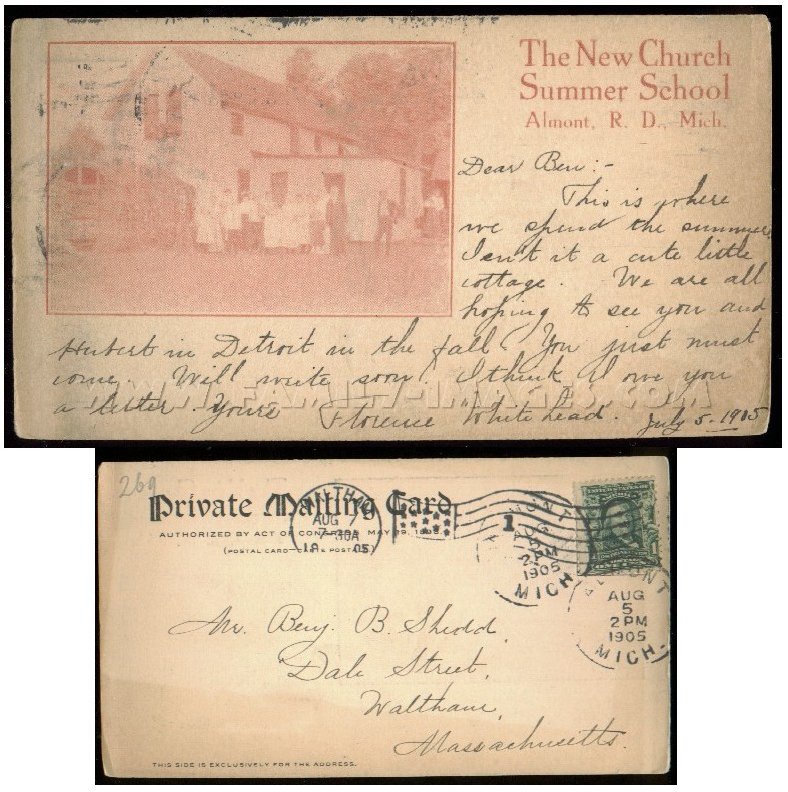 The New Church
Summer School
Almont, R. D., Mich.
Dear Ben:-
This is where
we spend the summer
Isn't it a cute little
cottage. We are all
hoping to see you and
Hubert in Detroit in the fall. You just must
come. Will write soon. I think I owe you
a letter. Yours Florence Whitehead. July 5-1905
WWW.FAMILY-IMAGES.COM
269
Private Mailing Card
AUTHORIZED BY ACT OF CONGRESS, MAY 19, 1898
(POSTAL CARD—CARTE POSTALE)
WALTHAM
AUG 7
7-30A
05
1
ALMONT
AUG
5
2 PM
1905
MICH.
ALMONT
AUG
5
2 PM
1905
MICH.
Mr. Benj. B. Shedd,
Dale Street,
Waltham,
Massachusetts.
THIS SIDE IS EXCLUSIVELY FOR THE ADDRESS.